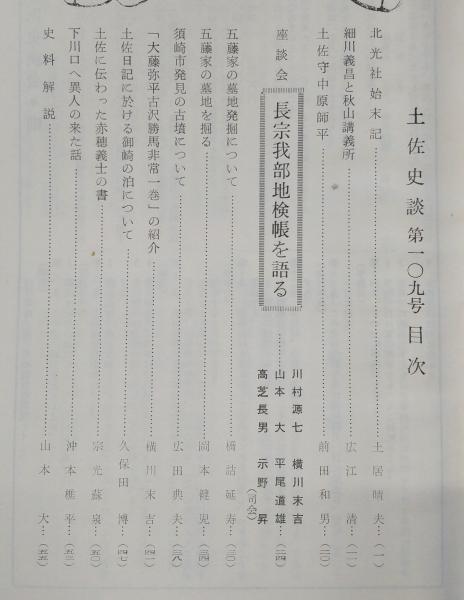 土佐史談第一〇九号目次
北光社始末記…土居晴夫…(一)
細川義昌と秋山講義所…広江清…(一一)
土佐守中原師平…前田和男…(二〇)
座談会 長宗我部地検帳を語る
川村源七 横川末吉
山本大 平尾道雄…(二四)
高芝長男 示野昇
(司会)
五藤家の墓地発掘について…橋詰延寿…(三〇)
五藤家の墓地を掘る…岡本健児…(三四)
須崎市発見の古墳について…広田典夫…(三八)
「大藤弥平古沢勝馬非常一巻」の紹介…横川末吉…(四二)
土佐日記に於ける御崎の泊について…久保田博…(四七)
土佐に伝わった赤穂義士の書…宗光蘇泉…(五〇)
下川口へ異人の来た話…沖本樵平…(五三)
史料解説…山本大…(五五)